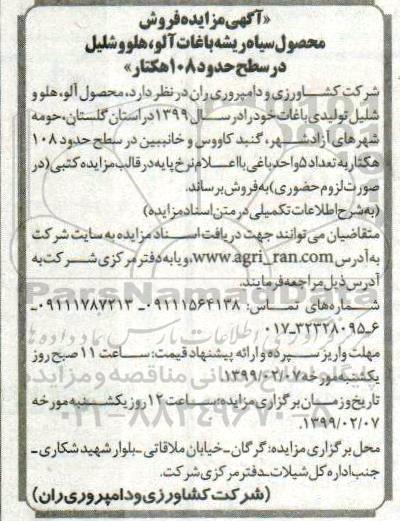 «آگهی مزایده فروش
محصول سیاه ریشه باغات آلو، هلو و شلیل
در سطح حدود ۱۰۸ هکتار»
شرکت کشاورزی و دامپروری ران در نظر دارد، محصول آلو، هلو و
شلیل تولیدی باغات خود را در سال ۱۳۹۹ در استان گلستان، حومه
شهرهای آزادشهر، گنبد کاووس و خانببین در سطح حدود ۱۰۸
هکتار به تعداد ۵ واحد باغی با اعلام نرخ پایه در قالب مزایده کتبی (در
صورت لزوم حضوری) به فروش برساند.
(به شرح اطلاعات تکمیلی در متن اسناد مزایده)
متقاضیان می توانند جهت دریافت اسناد مزایده به سایت شرکت
به آدرس www.agri_ran.com، و یا به دفتر مرکزی شرکت به
آدرس ذیل مراجعه فرمایند.
شماره های تماس: ۰۹۱۱۱۵۶۴۱۳۸ـ ۰۹۱۱۱۷۸۷۲۱۳ـ
۶ـ۰۱۷-۳۲۳۲۸۰۹۵
مهلت واریز سپرده و ارائه پیشنهاد قیمت: ساعت ۱۱ صبح روز
یکشنبه مورخه ۱۳۹۹/۰۲/۰۷.
تاریخ و زمان برگزاری مزایده: ساعت ۱۲ روز یکشنبه مورخه
۱۳۹۹/۰۲/۰۷.
محل برگزاری مزایده: گرگان ـ خیابان ملاقاتی ـ بلوار شهید شکاری ـ
جنب اداره کل شیلات ـ دفتر مرکزی شرکت.
(شرکت کشاورزی و دامپروری ران)
ParsNamadData
۰۲۱-۸۸۳۴۹۶۷۰-۸